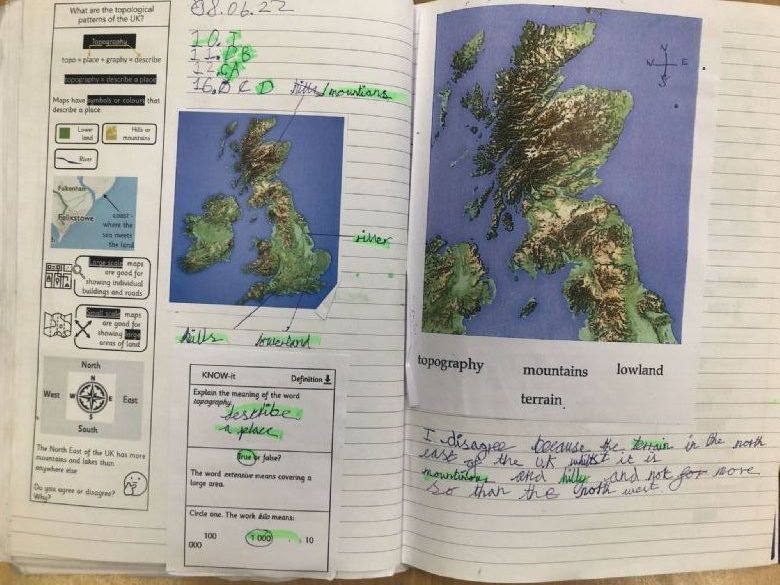 What are the topological
patterns of the UK?
Topography
topo = place + graphy = describe
topography = describe a place
Maps have symbols or colours that
describe a place.
Lower
land
Hills or
mountains
River
Falkenham
Felixstowe
coast -
where the
sea meets
the land
Large scale maps
are good for
showing individual
buildings and roads
Small scale maps
are good for
showing large
areas of land
North
N
West W E East
S
South
The North East of the UK has more
mountains and lakes than
anywhere else
Do you agree or disagree?
Why?
08.06.22
10.
11. D B
12. A
16. C D
hills/mountians
river
hills
lowerland
KNOW-it
Definition
Explain the meaning of the word
topography.
describe
a place
True or false?
The word extensive means covering a
large area.
Circle one. The work kilo means:
100 1 000 10
000
N
W E
S
topography mountains lowland
terrain
I disagree because the terrain in the north
east of the UK whilst it is
mountainous and hilly and not for more
so than the north west